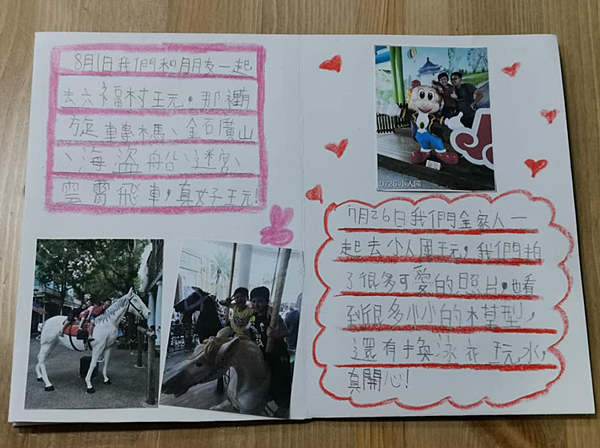 8月1日我們和朋友一起
去六福村玩,那裡有
旋轉木馬、金石廣山
、海盜船、迷宮、
雲霄飛車,真好玩!
0726小人國
7月26日我們全家人一
起去小人國玩,我們拍
了很多可愛的照片,也看
到很多小小的木莫型,
還有換泳衣玩水,
真開心!